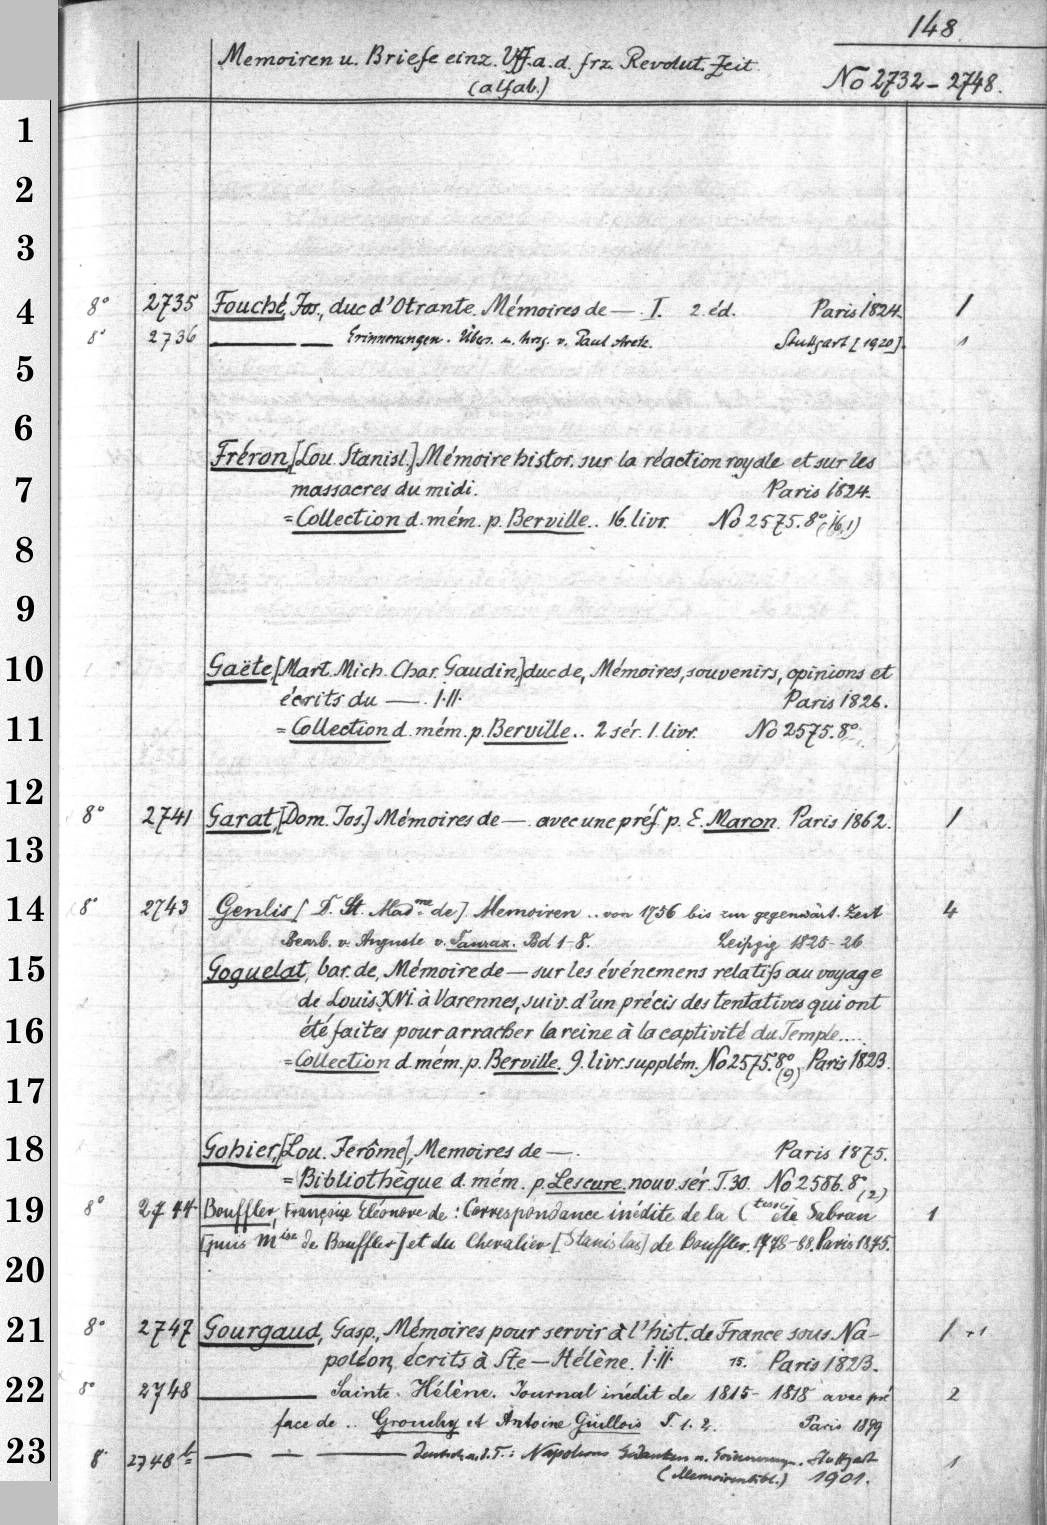 148
Memoiren u. Briefe einz. Vff. a. d. frz. Revolut. Zeit
(alfab.)
No 2732 – 2748.
1
2
3
4 8° 2735 Fouché, Jos., duc d'Otrante. Mémoires de — . I. 2. éd. Paris 1824. 1
8° 2736 —— — Erinnerungen. Übers. u. hrsg. v. Paul Stuttgart [1920]. 1
5
6
Fréron, [Lou. Stanisl.] Mémoire histor. sur la réaction royale et sur les
7 massacres du midi. Paris 1824.
= Collection d. mém. p. Berville.. 16. livr. No 2575. 8° (16,1)
8
9
10 Gaëte, [Mart. Mich. Char. Gaudin,] duc de, Mémoires, souvenirs, opinions et
écrits du — . I. II. Paris 1826.
11 = Collection d. mém. p. Berville.. 2 sér. 1. livr. No 2575. 8°
12
8° 2741 Garat, [Dom. Jos.] Mémoires de — . avec une préf. p. E. Maron. Paris 1862. 1
13
14 8° 2743 Genlis [D. St. Mad.me de]. Memoiren .. von 1756 bis zur gegenwärt. Zeit 4
Bearb. v. Auguste v. Bd 1–8. Leipzig 1825–26
15 Goguelat, bar. de, Mémoire de — sur les événemens relatifs au voyage
de Louis XVI. à Varennes, suiv. d'un précis des tentatives qui ont
16 été faites pour arracher la reine à la captivité du Temple....
= Collection d. mém. p. Berville. 9. livr. supplém. No 2575. 8° (9) Paris 1823.
17
18 Gohier, [Lou. Jerôme], Memoires de — . Paris 1875.
= Bibliothèque d. mém. p. Lescure. nouv. sér. T. 30. No 2586. 8° (2)
19 8° 2744 Bouffler, Françoise Eléonore de : Correspondance inédite de la Ctesse de Sabran 1
[puis Mise de Bouffler] et du Chevalier [Stanislas] de Bouffler. 1778–88. Paris 1875.
20
21 8° 2747 Gourgaud, Gasp., Mémoires pour servir à l'hist. de France sous Na- 1 +1
poléon, écrits à Ste–Hélène. I. II. 15. Paris 1823.
22 8° 2748 —— Sainte-Hélène. Journal inédit de 1815–1818 avec pré 2
face de .. Grouchy et Antoine Guillois T. 1. 2. Paris 1899
23 8° 2748b — — —— Deutsch u. d. T. : Napoleons Gedanken u. Erinnerungn. Stuttgart 1
(Memoirenbibl.) 1901.